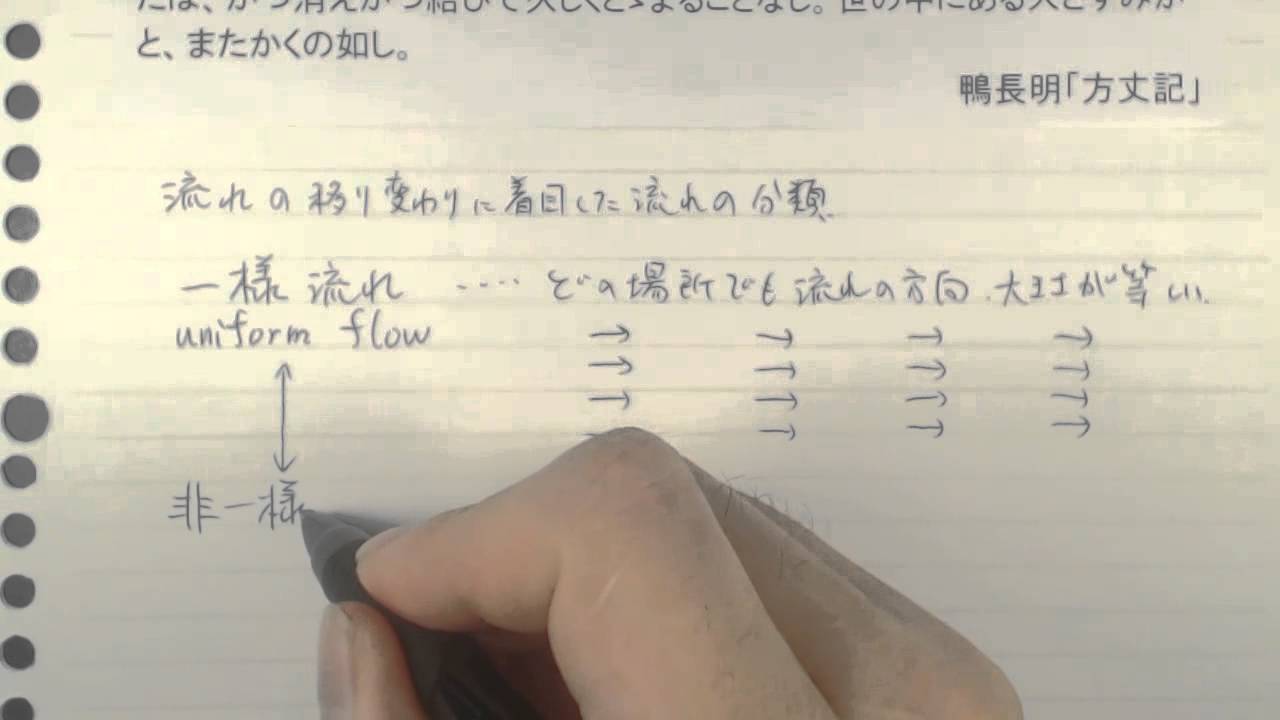 たは、かつ消えかつ結びて久しくとゞまることなし。世の中にある人とすみか
と、またかくの如し。
鴨長明「方丈記」
流れの移り変わりに着目した流れの分類
一様流れ ‥‥ どの場所でも流れの方向、大きさが等しい.
uniform flow → → → →
→ → → →
→ → → →
→ → →
非一様